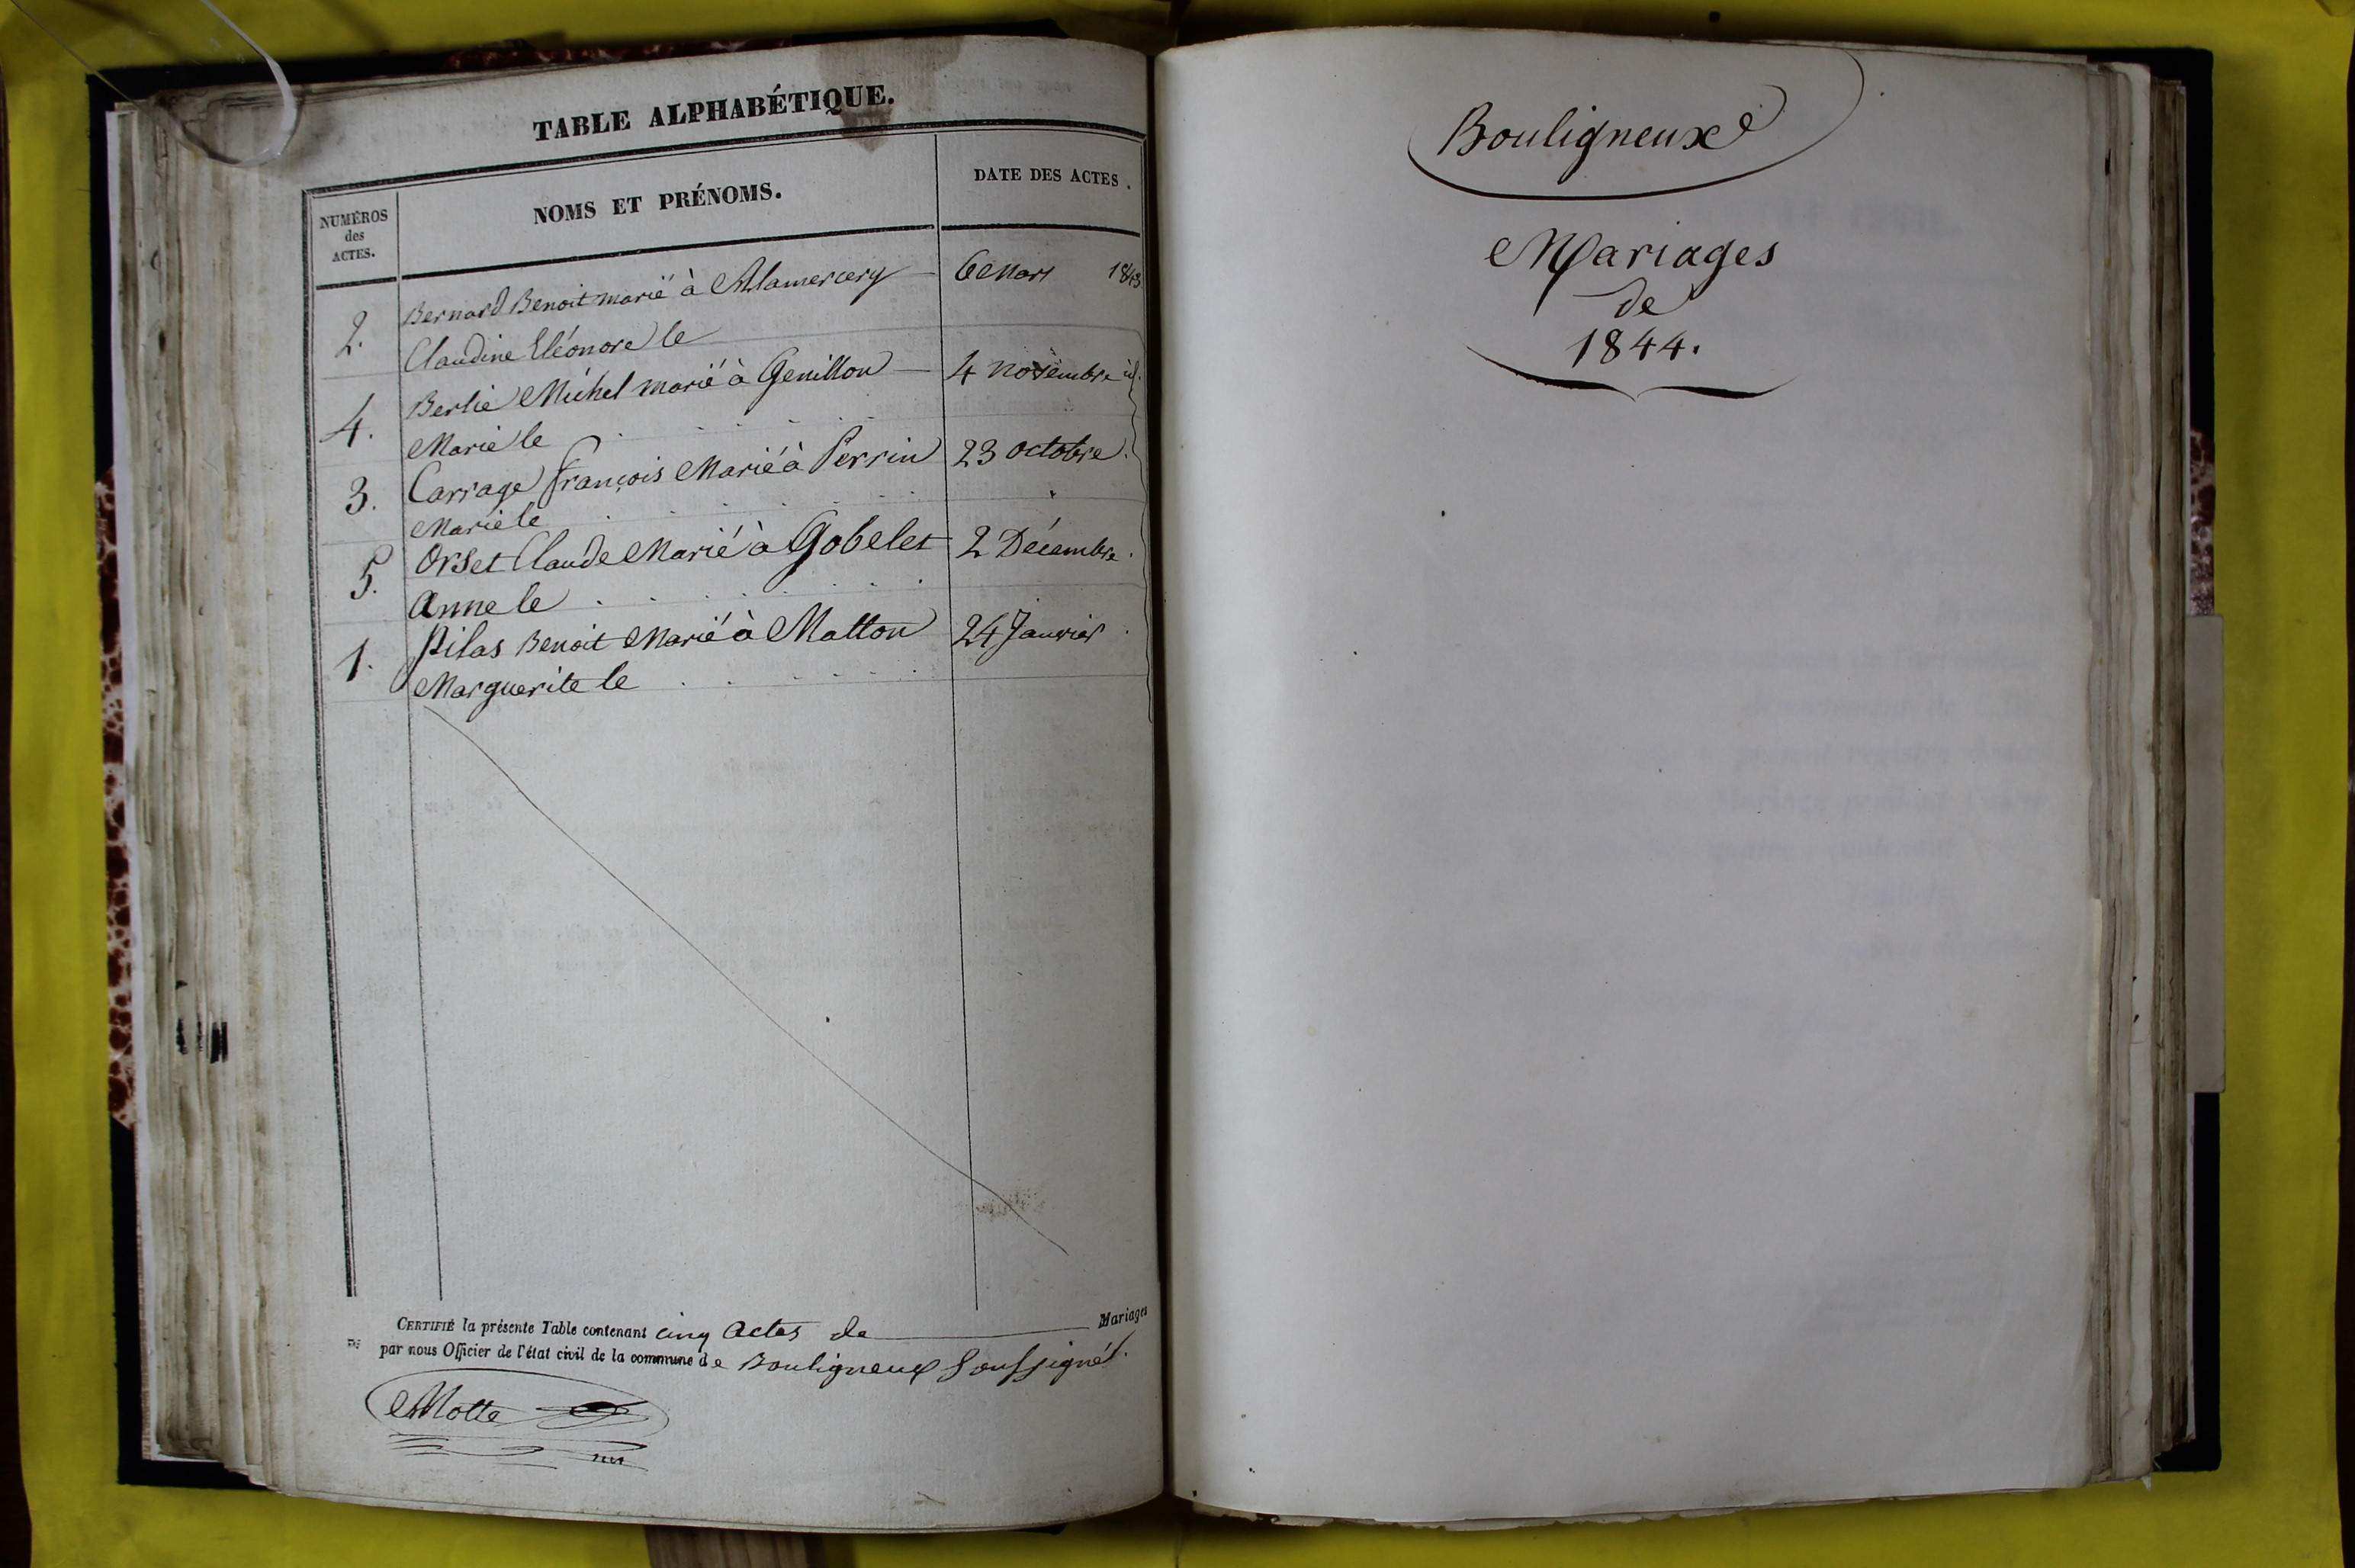 TABLE ALPHABÉTIQUE.
NUMÉROS
des
ACTES.
NOMS ET PRÉNOMS.
DATE DES ACTES.
2. Bernard Benoit marié à Alamercery 6 Mars 1843
Claudine Eléonore le
4. Berlie Michel marié à Genillon 4 novembre id.
Marie le
3. Carrage François Marié à Perrin 23 octobre.
Marie le
5. Orset Claude Marié à Gobelet 2 Décembre.
Anne le
1. Pilas Benoit Marié à Matton 24 Janvier.
Marguerite le
CERTIFIÉ la présente Table contenant cinq actes de Mariages
par nous Officier de l'état civil de la commune de Bouligneux Soussigné.
Motte
Bouligneux
Mariages
de
1844.